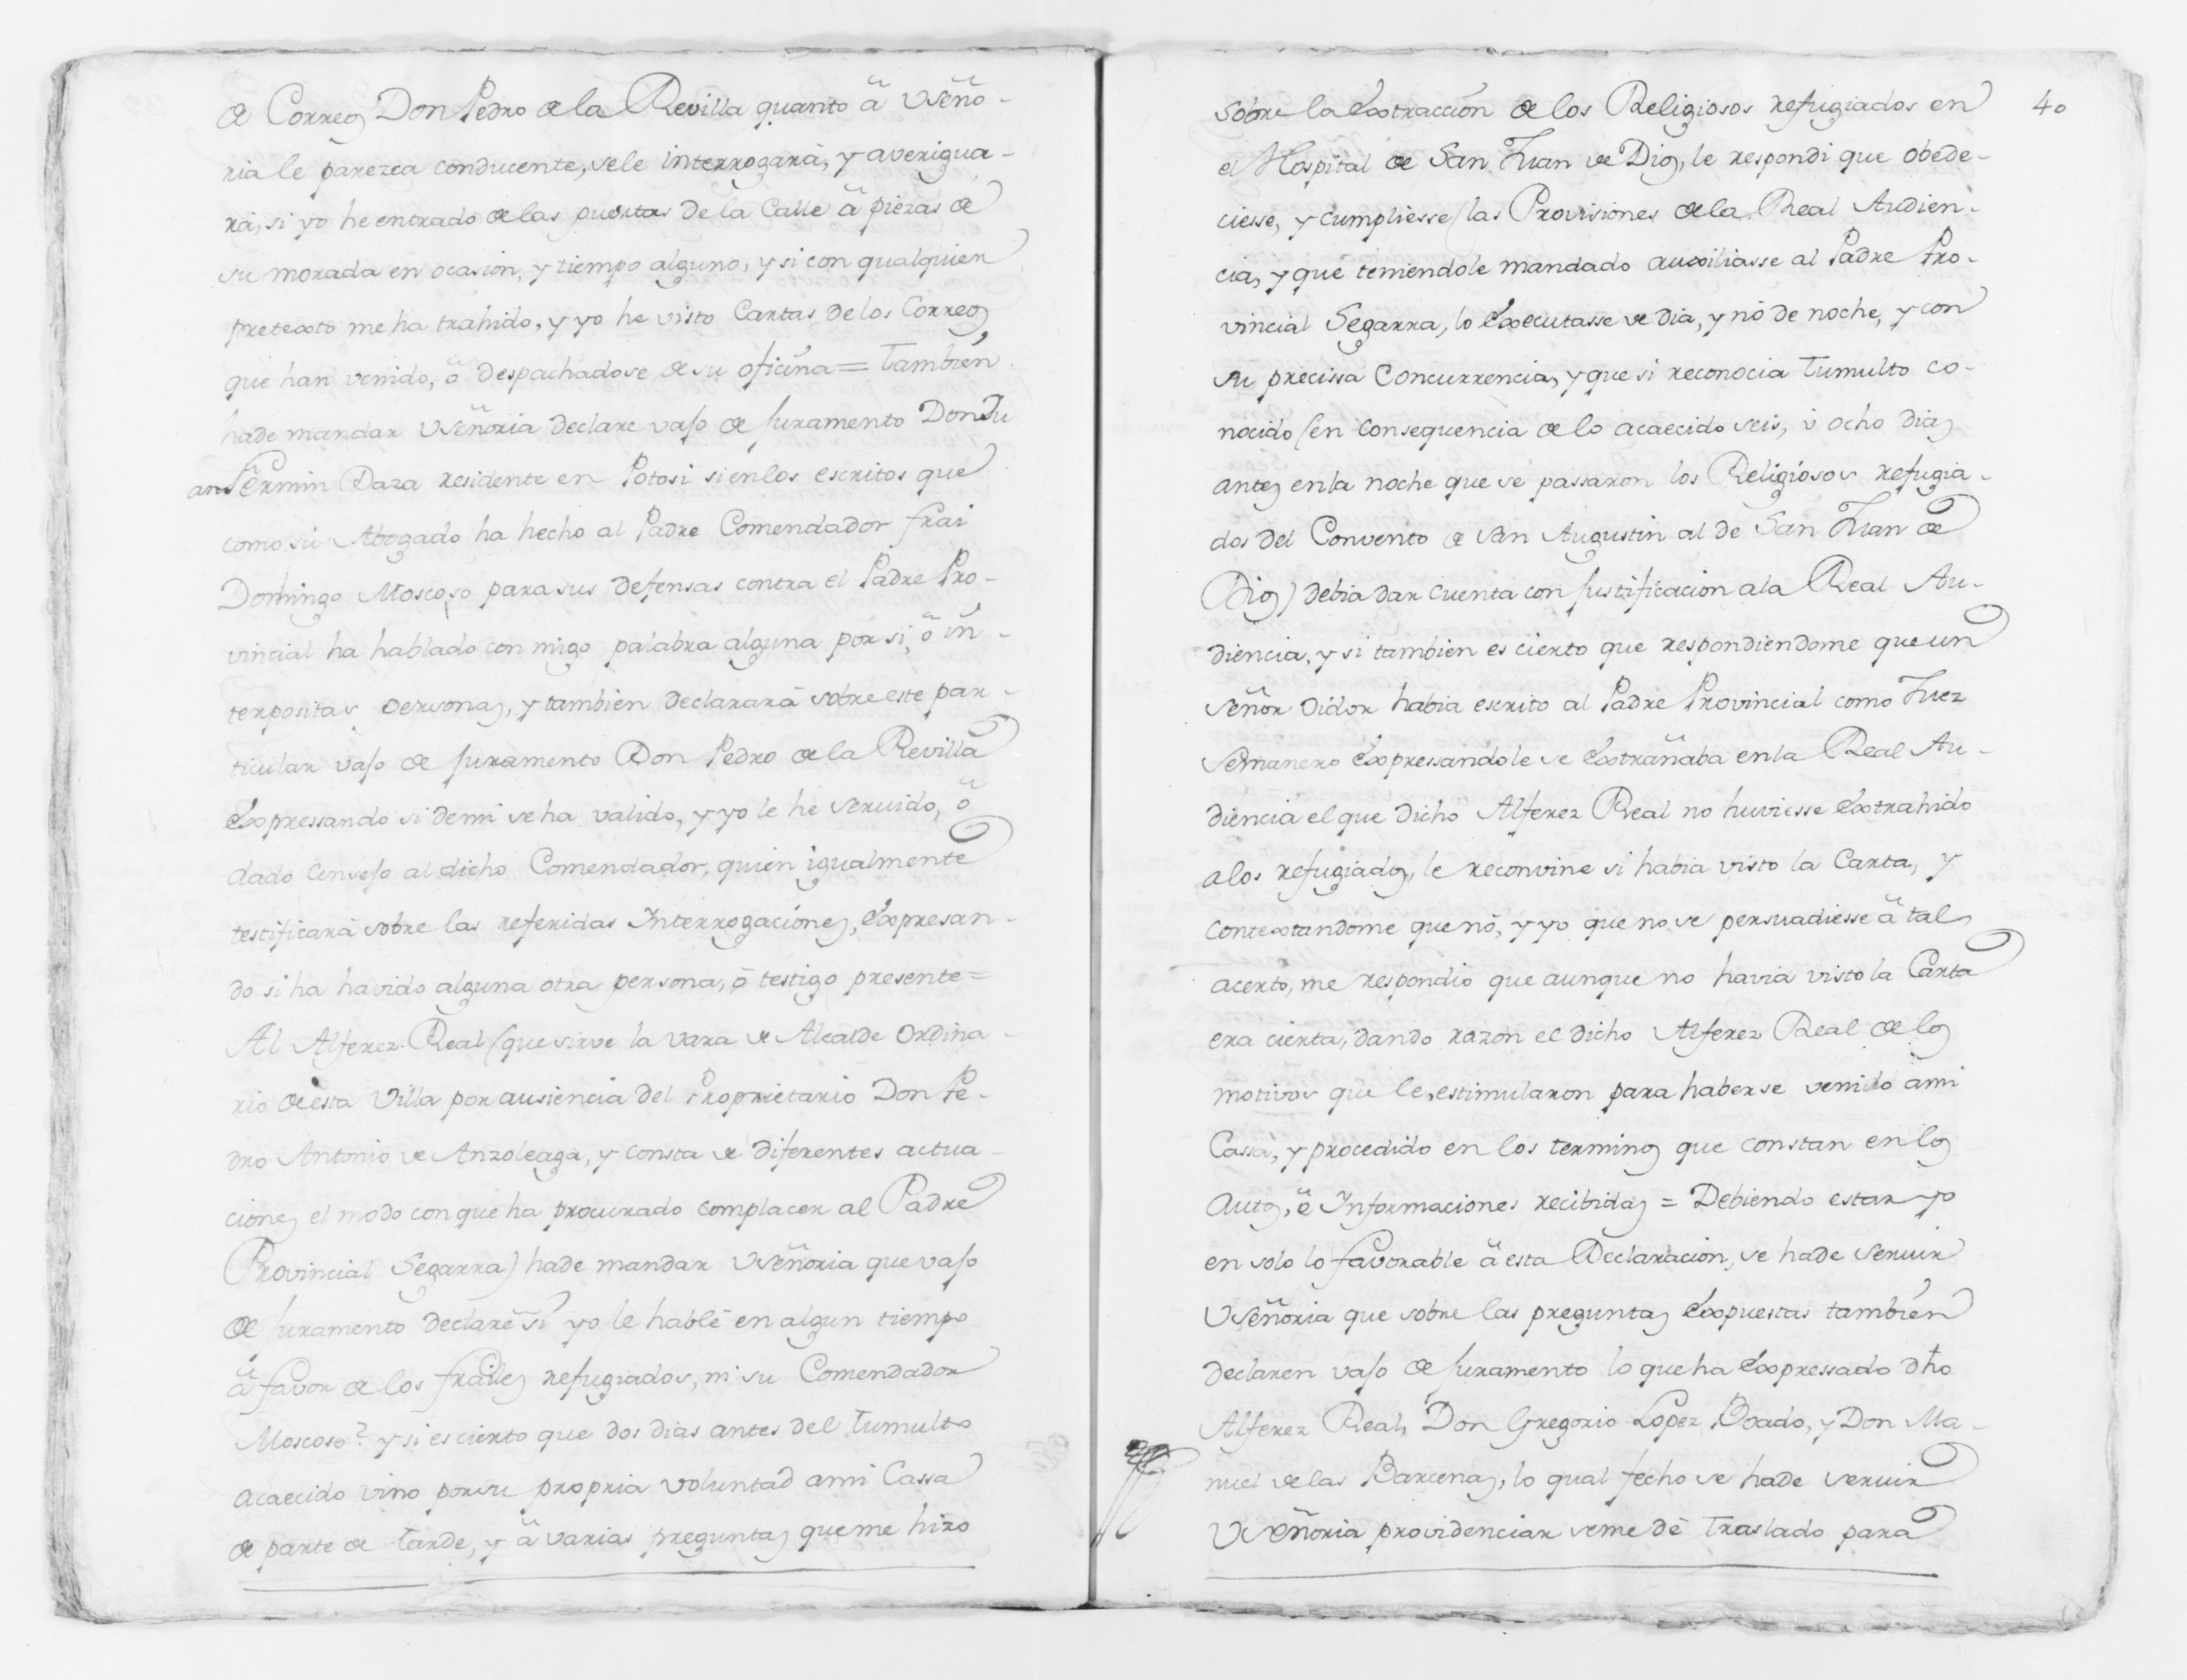 de Correos Don Pedro de la Revilla quanto â Vseño-
ria le parezca conducente, se le interrogarâ, y averigua-
râ, si yo he entrado de las puertas de la Calle â piezas de
su morada en ocasion, y tiempo alguno, y si con qualquier
pretexto me ha trahido, y yo he visto Cartas de los Correos,
que han venido, ô despachadose de su oficina = Tambien
hade mandar Vseñoria declare vajo de juramento Don Ju
an Fermin Daza residente en Potosi si en los escritos que
como su Abogado ha hecho al Padre Comendador frai
Domingo Moscoso para sus defensas contra el Padre Pro-
vincial ha hablado con migo palabra alguna por si, ô in-
terpositas personas, y tambien declararâ sobre este par-
ticular vajo de juramento Don Pedro de la Revilla
Expressando si demi se ha valido, y yo le he servido, ô
dado Consejo al dicho Comendador, quien igualmente
testificarâ sobre las referidas Interrogaciones, Expresan-
do si ha havido alguna otra persona, ô testigo presente=
Al Alferez Real (que sirve la vara de Alcalde Ordina-
rio de esta Villa por ausiencia del Proprietario Don Pe-
dro Antonio de Anzoleaga, y consta de diferentes actua-
ciones el modo con que ha procurado complacer al Padre
Provincial Segarra) hade mandar Vseñoria que vajo
de juramento declare si yo le hablê en algun tiempo
â favor de los frailes refugiados, ni su Comendador
Moscoso? y si es cierto que dos dias antes del Tumulto
acaecido vino por su propria voluntad ami Cassa
de parte de tarde, y â varias preguntas que me hizo
40
sobre la Extraccion de los Religiosos refugiados en
el Hospital de San Juan de Dios, le respondi que obede-
ciesse, y cumpliesse las Provisiones de la Real Audien-
cia, y que teniendole mandado auxiliasse al Padre Pro-
vincial Segarra, lo Executasse de dia, y nô de noche, y con
su precissa Concurrencia, y que si reconocia Tumulto co-
nocido (en consequencia de lo acaecido seis, û ocho dias
antes en la noche que se passaron los Religiosos refugia-
dos del Convento de San Augustin al de San Juan de
Dios) debia dar Cuenta con justificacion a la Real Au-
diencia, y si tambien es cierto que respondiendome que un
Señor Oidor habia escrito al Padre Provincial como Juez
Semanero Expressandole se Extrañaba en la Real Au-
diencia el que dicho Alferez Real no huviesse Extrahido
alos refugiados, le reconvine si habia visto la Carta, y
contextandome que nô, y yo que no se persuadiesse â tal
acerto, me respondio que aunque no havia visto la Carta
era cierta, dando razon el dicho Alferez Real de los
motivos que le estimularon para haberse venido ami
Cassa, y procedido en los terminos que constan en los
Autos, ê Informaciones recibidas = Debiendo estar yo
en solo lo favorable â esta Declaracion, se hade servir
Vseñoria que sobre las preguntas Expuestas tambien
declaren vajo de juramento lo que ha Expressado dho
Alferez Real, Don Gregorio Lopez Boado, y Don Ma-
nuel de las Barcenas, lo qual fecho se hade servir
Vseñoria providenciar se me dê Traslado para